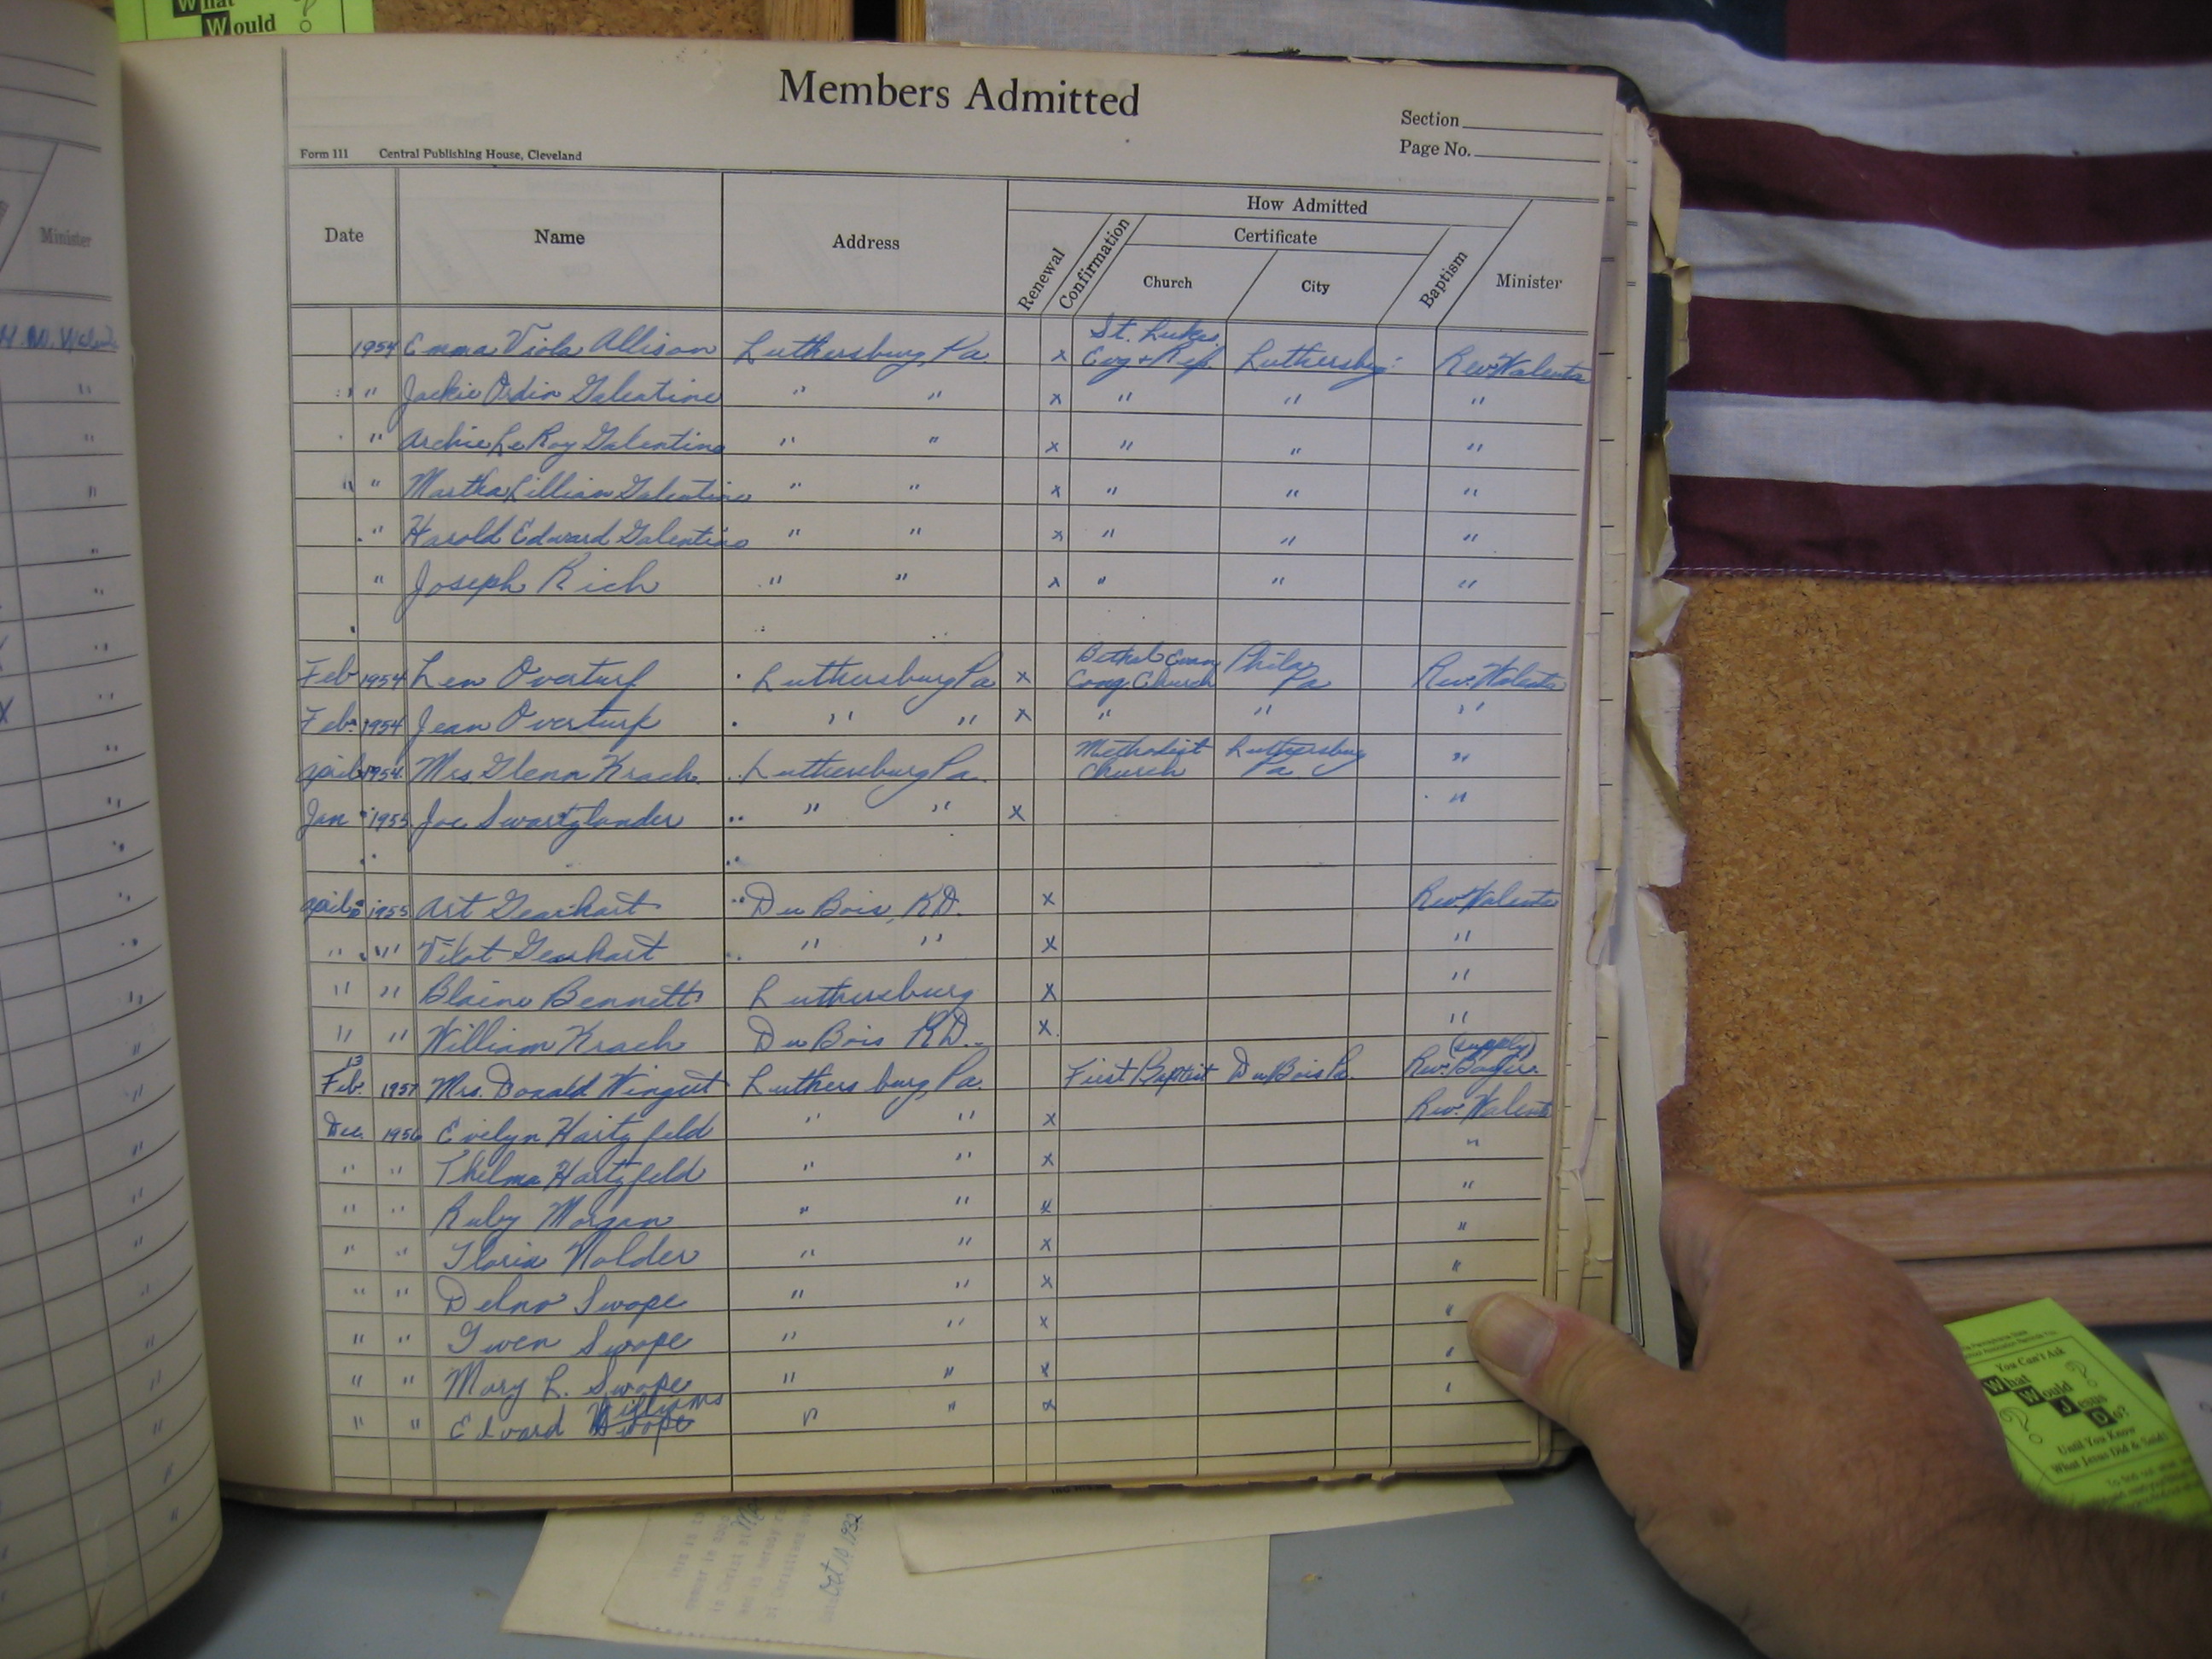 What
Would
Members Admitted
Section
Page No.
Form 111 Central Publishing House, Cleveland
Minister
Date Name Address Renewal Confirmation How Admitted Certificate Church City Baptism Minister
St. Lukes
1954 Emma Viola Allison Luthersburg, Pa. x Evg + Ref. Luthersbg: Rev. Walenta
" " Jackie Ordin Galentine " " x " " "
" Archie LeRoy Galentine " " x " " "
" " Martha Lillian Galentine " " x " " "
" Harold Edward Galentine " " x " " "
" Joseph Rich " " x " " "
Bethel Evan Phila,
Feb 1954 Len Overturf Luthersburg Pa x Cong. Church Pa Rev. Walenta
Feb. 1954 Jean Overturf " " x " " "
Methodist Luthersburg
April 1954 Mrs Glenn Krach Luthersburg Pa. Church Pa "
Jan 1955 Joe Swartzlander " " x "
April 1955 Art Gearhart Du Bois, R.D. x Rev. Walenta
" " Vilot Gearhart " " x "
" " Blaine Bennett Luthersburg x "
" " William Krach Du Bois R.D. x "
13 (supply)
Feb. 1957 Mrs. Donald Wingert Luthersburg, Pa. First Baptist Du Bois Pa. Rev.
Dec. 1956 Evelyn Hartzfeld " " x Rev. Walenta
" " Thelma Hartzfeld " " x "
" " Ruby Morgan " " x "
" " Gloria Nolder " " x "
" " Delno Swope " " x "
" " Gwen Swope " " x "
" " Mary L. Swope " " x "
Williams
" " Edward Swope " " x "
Oct. 10 1932
You Can't Ask
What
Would
Jesus
Do?
Until You Know
What Jesus Did & Said!